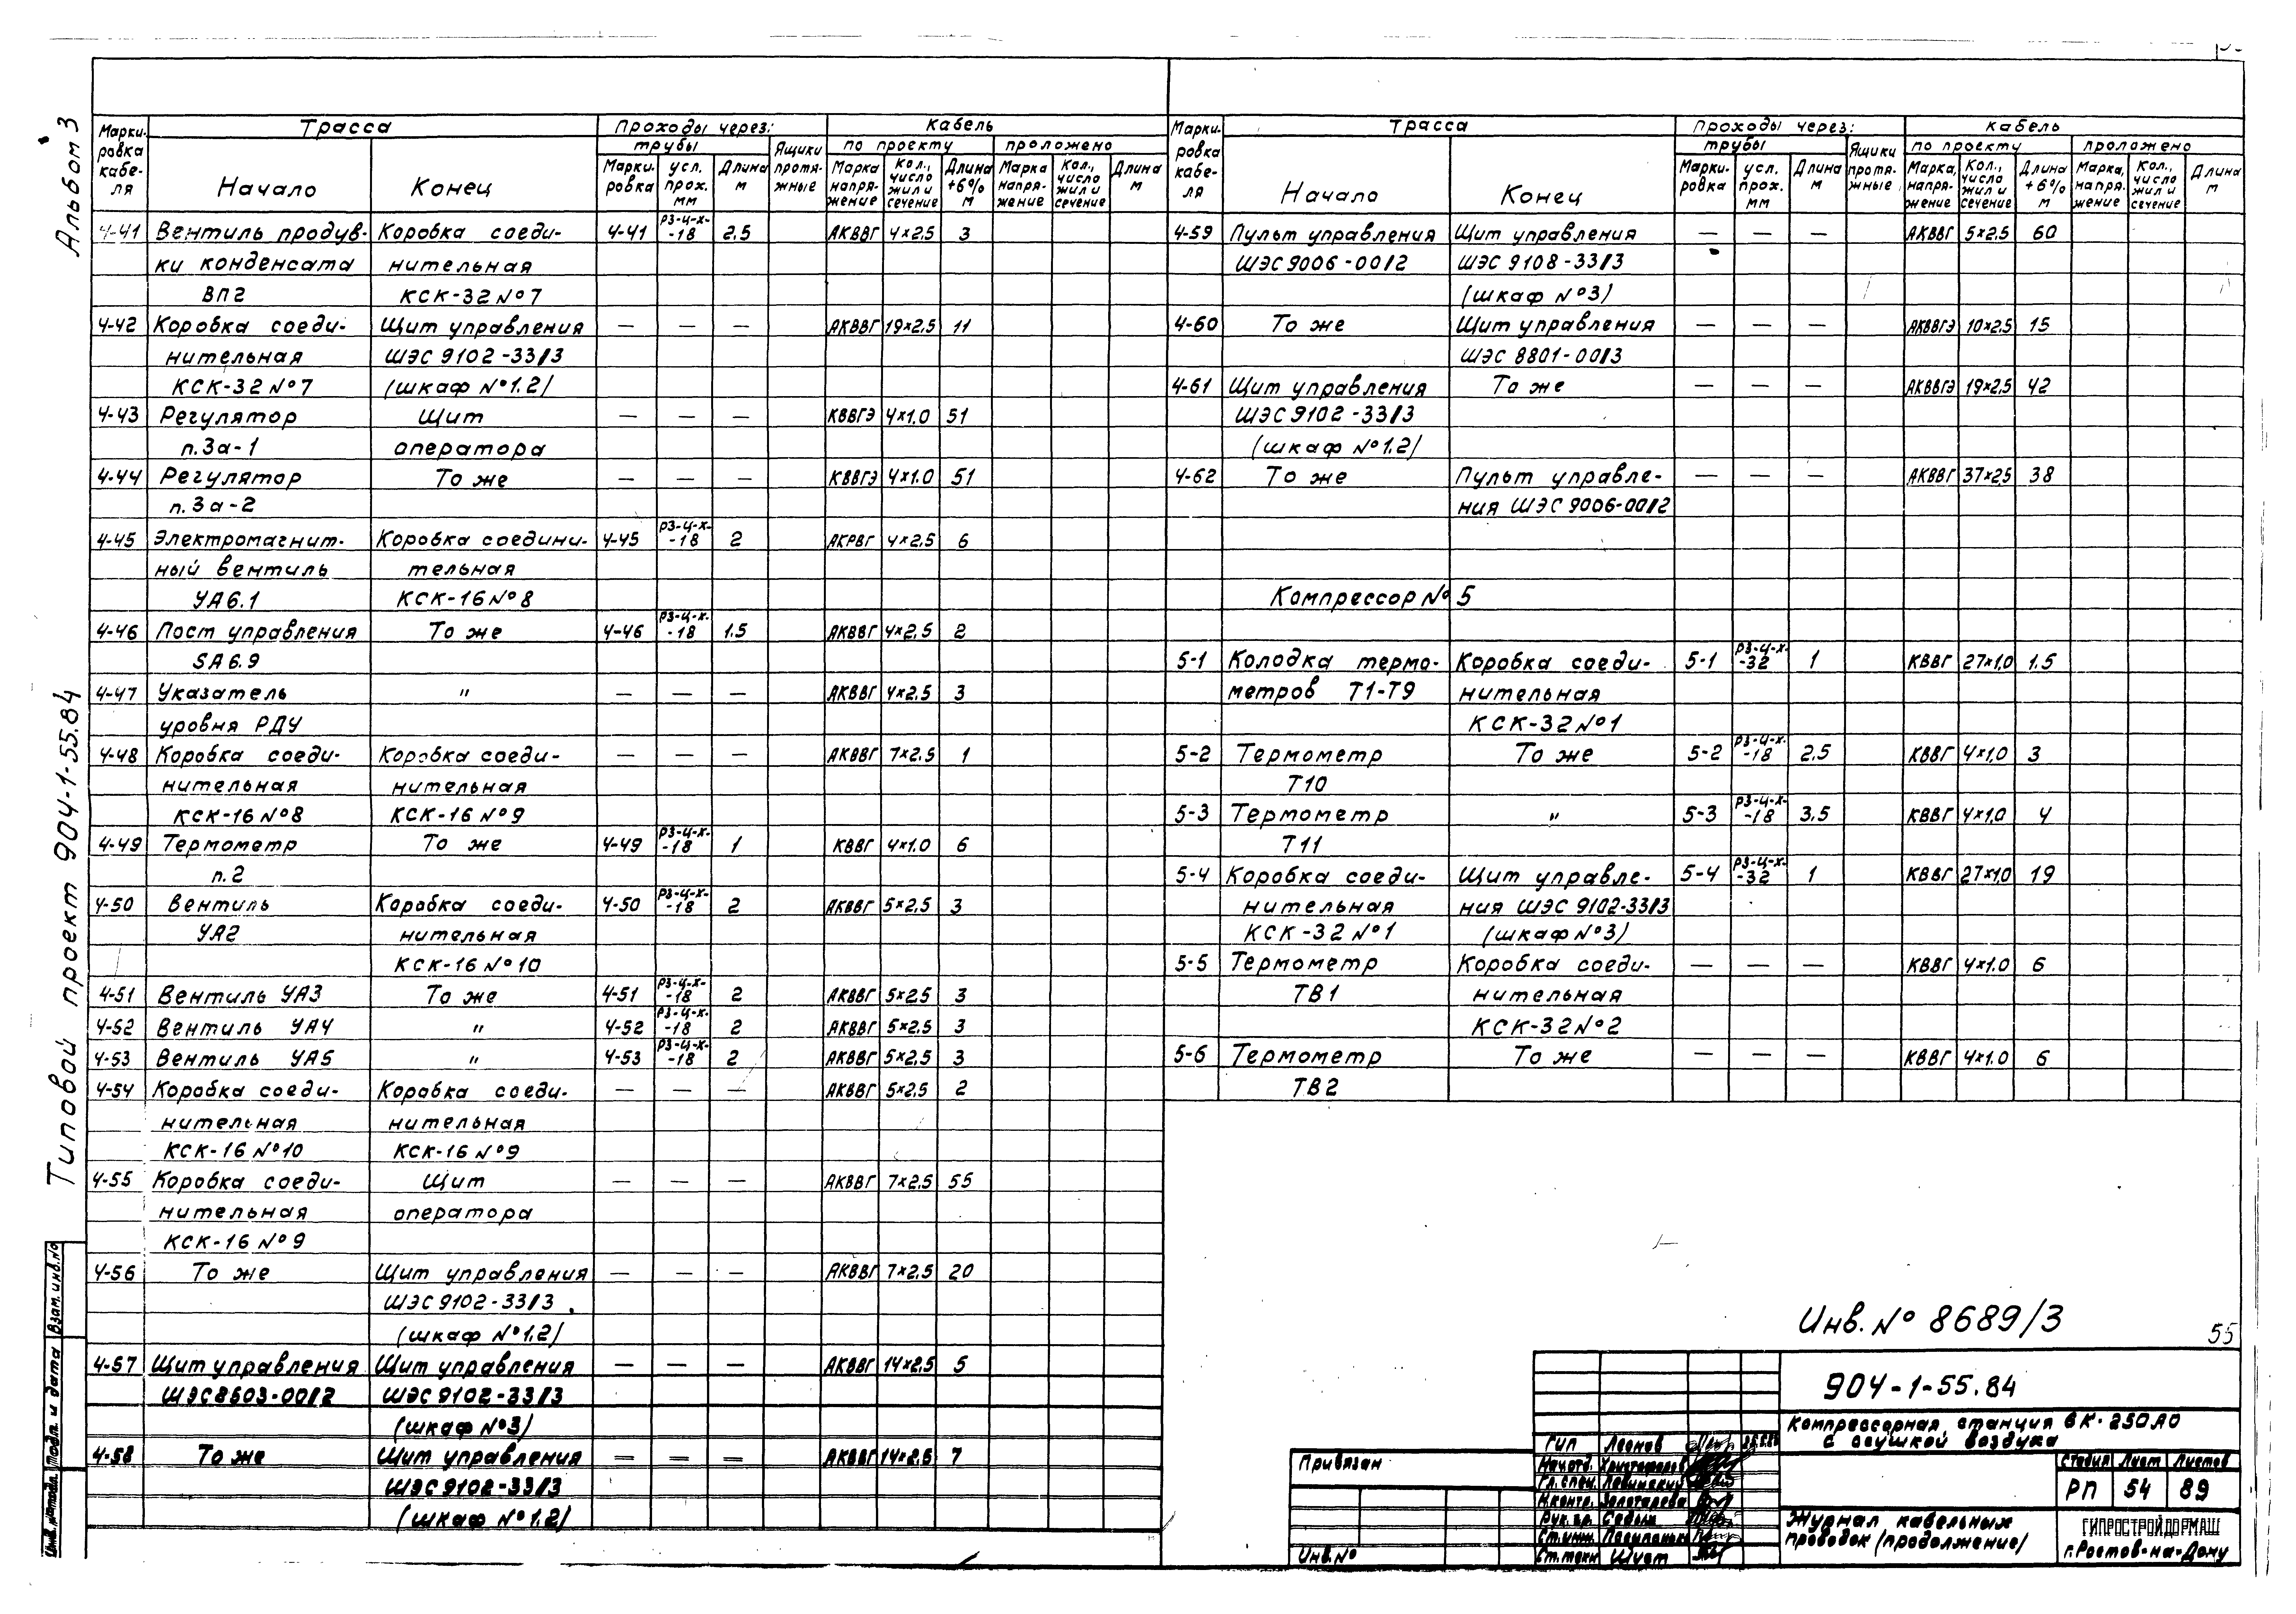 Альбом 3
Типовой проект 904-1-55.84
Взам. инв. №
Подп. и дата
Марки-ровка кабе-ля | Трасса | Проходы через: | Кабель
трубы | Ящики протя-жные | по проекту | проложено
Начало | Конец | Марки-ровка | усл. прох. мм | Длина м | Марка напря-жение | Кол., число жил и сечение | Длина +6% м | Марка напря-жение | Кол., число жил и сечение | Длина м
4-41 Вентиль продув- Коробка соеди- 4-41 РЗ-Ц-Х-18 2,5 АКВВГ 4×2,5 3
ки конденсата нительная
ВП2 КСК-32 №7
4-42 Коробка соеди- Щит управления — — — АКВВГ 19×2,5 11
нительная ШЭС 9102-33/3
КСК-32 №7 (шкаф №1.2)
4-43 Регулятор Щит — — — КВВГЭ 4×1,0 51
п.3а-1 оператора
4-44 Регулятор То же — — — КВВГЭ 4×1,0 51
п.3а-2
4-45 Электромагнит- Коробка соедини- 4-45 РЗ-Ц-Х-18 2 АКРВГ 4×2,5 6
ный вентиль тельная
УА6.1 КСК-16 №8
4-46 Пост управления То же 4-46 РЗ-Ц-Х-18 1,5 АКВВГ 4×2,5 2
SA6.9
4-47 Указатель " — — — АКВВГ 4×2,5 3
уровня РДУ
4-48 Коробка соеди- Коробка соеди- — — — АКВВГ 7×2,5 1
нительная нительная
КСК-16 №8 КСК-16 №9
4-49 Термометр То же 4-49 РЗ-Ц-Х-18 1 КВВГ 4×1,0 6
п.2
4-50 Вентиль Коробка соеди- 4-50 РЗ-Ц-Х-18 2 АКВВГ 5×2,5 3
УА2 нительная
КСК-16 №10
4-51 Вентиль УА3 То же 4-51 РЗ-Ц-Х-18 2 АКВВГ 5×2,5 3
4-52 Вентиль УА4 " 4-52 РЗ-Ц-Х-18 2 АКВВГ 5×2,5 3
4-53 Вентиль УА5 " 4-53 РЗ-Ц-Х-18 2 АКВВГ 5×2,5 3
4-54 Коробка соеди- Коробка соеди- — — — АКВВГ 5×2,5 2
нительная нительная
КСК-16 №10 КСК-16 №9
4-55 Коробка соеди- Щит — — — АКВВГ 7×2,5 55
нительная оператора
КСК-16 №9
4-56 То же Щит управления — — — АКВВГ 7×2,5 20
ШЭС 9102-33/3
(шкаф №1.2)
4-57 Щит управления Щит управления — — — АКВВГ 14×2,5 5
ШЭС8603-00/2 ШЭС 9102-33/3
(шкаф №3)
4-58 То же Щит управления — — — АКВВГ 14×2,5 7
ШЭС 9102-33/3
(шкаф №1.2)
Марки-ровка кабе-ля | Трасса | Проходы через: | кабель
трубы | Ящики протя-жные | по проекту | проложено
Начало | Конец | Марки-ровка | усл. прох. мм | Длина м | Марка, напря-жение | Кол., число жил и сечение | Длина +6% м | Марка, напря-жение | Кол., число жил и сечение | Длина м
4-59 Пульт управления Щит управления — — — АКВВГ 5×2,5 60
ШЭС 9006-00/2 ШЭС 9108-33/3
(шкаф №3)
4-60 То же Щит управления — — — АКВВГЭ 10×2,5 15
ШЭС 8801-00/3
4-61 Щит управления То же — — — АКВВГЭ 19×2,5 42
ШЭС 9102-33/3
(шкаф №1.2)
4-62 То же Пульт управле- — — — АКВВГ 37×2,5 38
ния ШЭС 9006-00/2
Компрессор № 5
5-1 Колодка термо- Коробка соеди- 5-1 РЗ-Ц-Х-32 1 КВВГ 27×1,0 1,5
метров Т1-Т9 нительная
КСК-32 №1
5-2 Термометр То же 5-2 РЗ-Ц-Х-18 2,5 КВВГ 4×1,0 3
Т10
5-3 Термометр " 5-3 РЗ-Ц-Х-18 3,5 КВВГ 4×1,0 4
Т11
5-4 Коробка соеди- Щит управле- 5-4 РЗ-Ц-Х-32 1 КВВГ 27×1,0 19
нительная ния ШЭС 9102-33/3
КСК-32 №1 (шкаф №3)
5-5 Термометр Коробка соеди- — — — КВВГ 4×1,0 6
ТВ1 нительная
КСК-32 №2
5-6 Термометр То же — — — КВВГ 4×1,0 6
ТВ2
Инв. № 8689/3
55
904-1-55.84
Компрессорная станция 6К-250АО
с осушкой воздуха
Привязан
Инв. №
ГИП Леонов
Нач.отд. Христофоров
Гл. спец. Ловинский
Н.контр. Золотарева
Рук. гр. Седых
Ст.инж.
Ст.техн Шуст
Стадия Лист Листов
РП 54 89
Журнал кабельных
проводок (продолжение)
ГИПРОСТРОЙДОРМАШ
г.Ростов-на-Дону